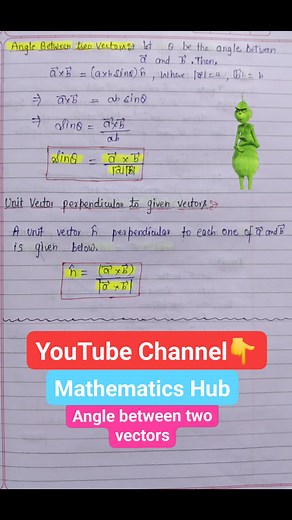 Angle Between two vectors:- let θ be the angle between
a⃗ and b⃗. Then,
a⃗×b⃗ = (ab sinθ) n̂, where |a⃗| = a, |b⃗| = b
⇒ a⃗×b⃗ = ab sinθ
⇒ sinθ = a⃗×b⃗ / ab
sinθ = a⃗×b⃗ / |a⃗||b⃗|
Unit Vector perpendicular to given vectors:-
A unit vector n̂ perpendicular to each one of a⃗ and b⃗
is given below.
n̂ = (a⃗×b⃗) / |a⃗×b⃗|
YouTube Channel👇
Mathematics Hub
Angle between two
vectors